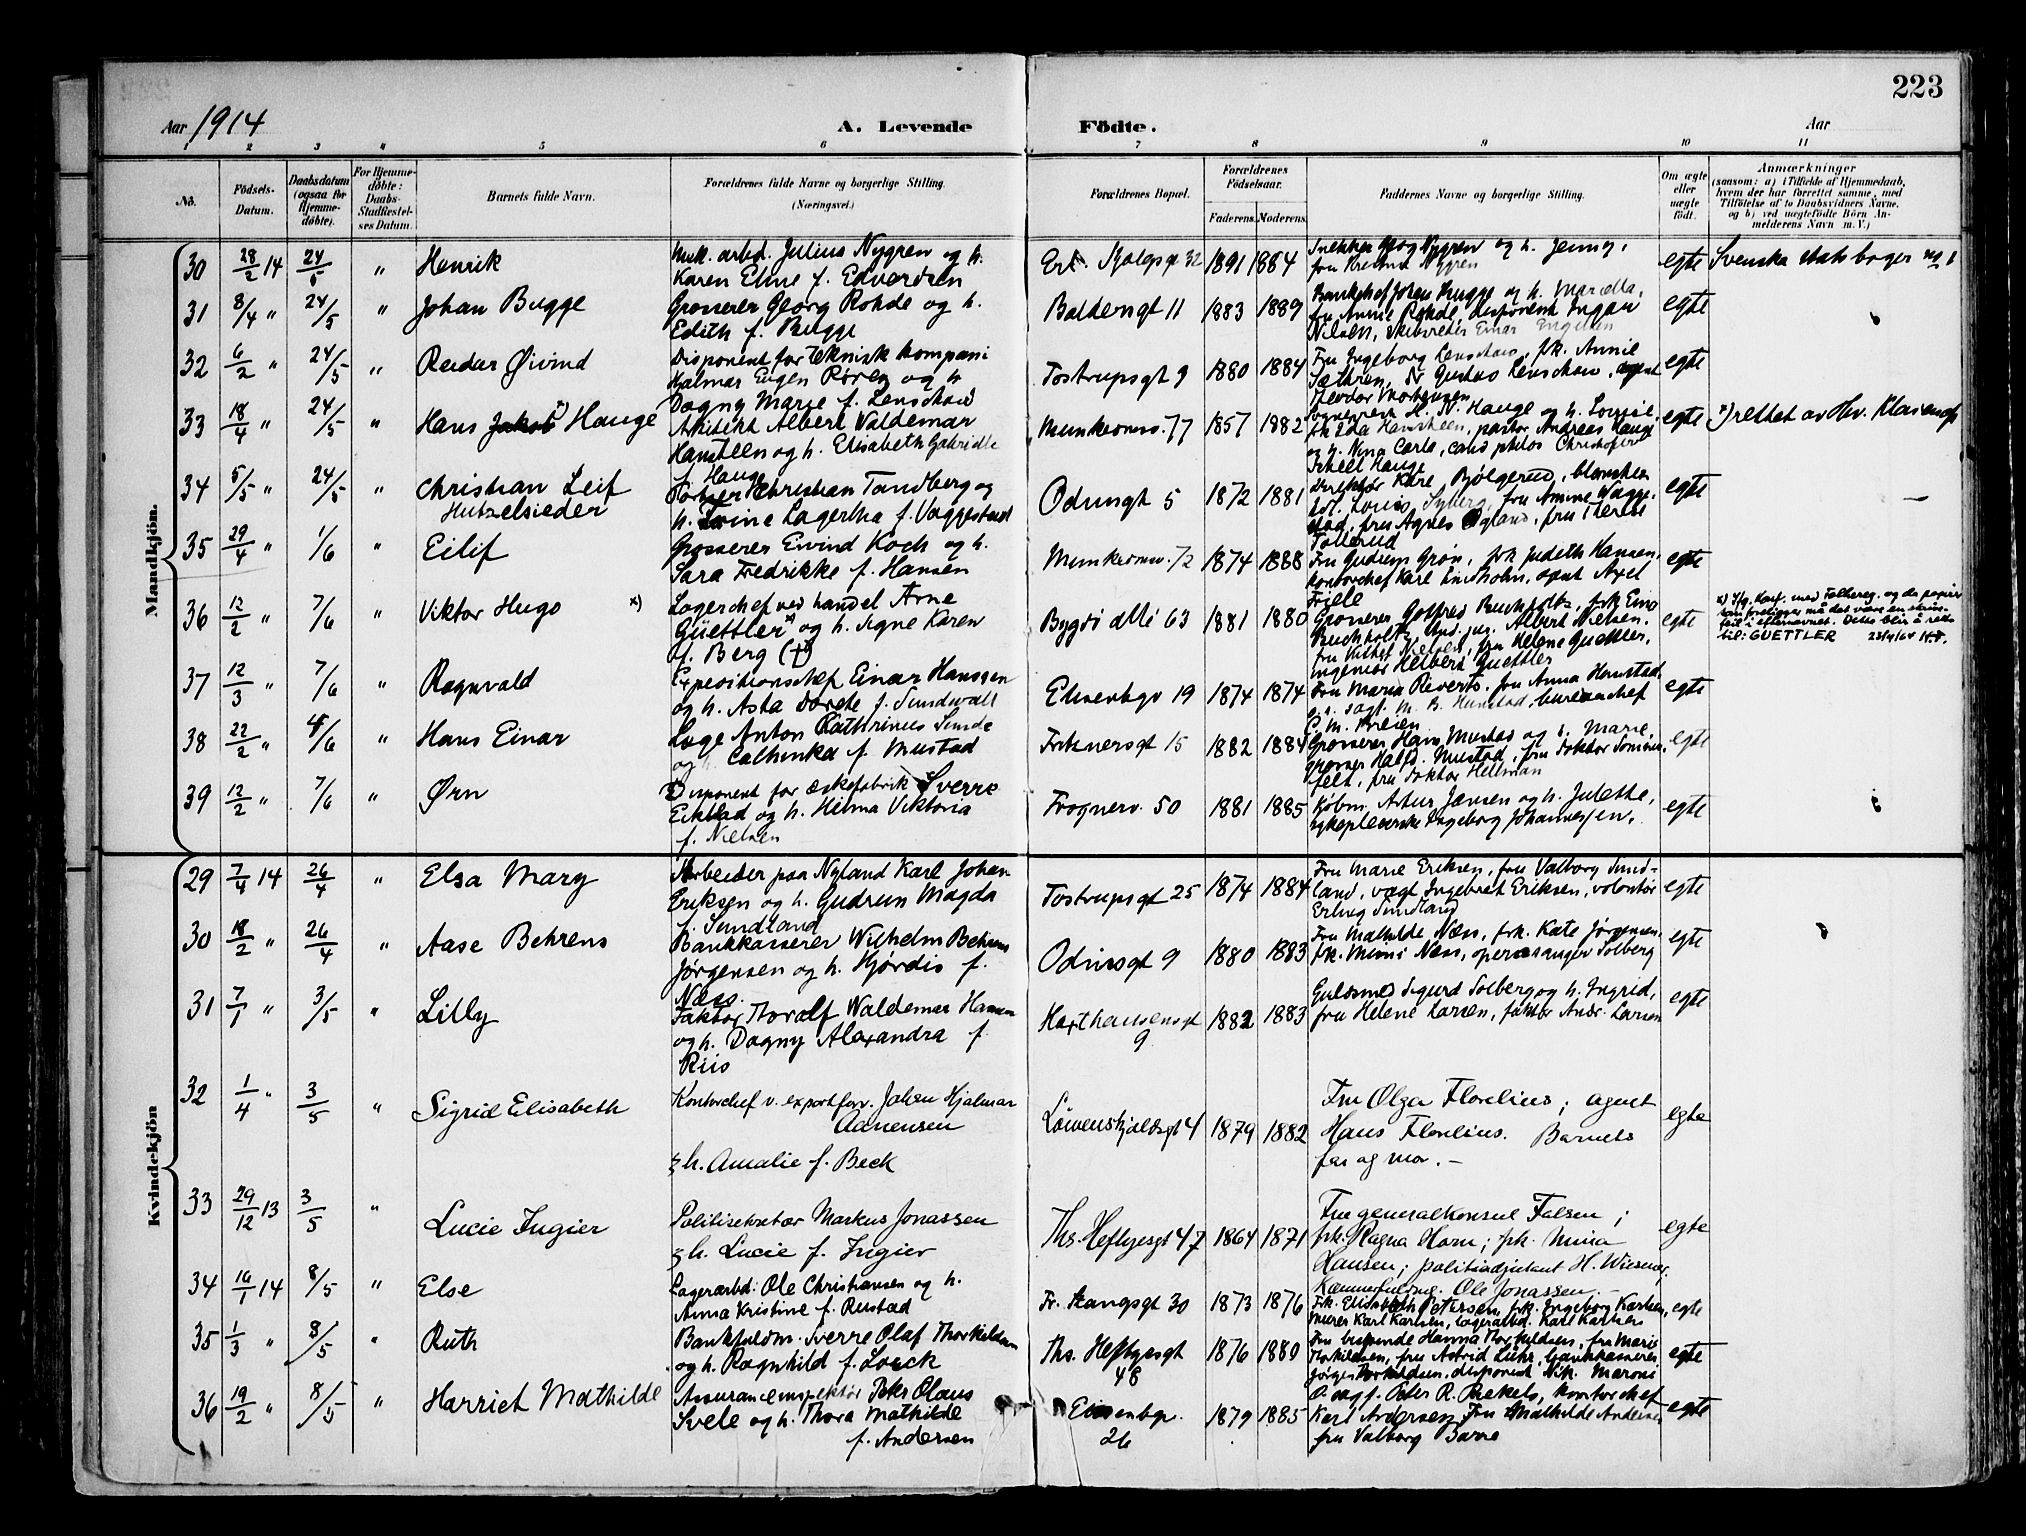 223
Aar 1914
A. Levende Födte.
Aar
1 2 3 4 5 6 7 8 9 10 11
No.
Födsels-Datum.
Daabsdatum (ogsaa for Hjemmedöbte).
For Hjemmedöbte: Daabs-Stadfæstelses Datum.
Barnets fulde Navn.
Forældrenes fulde Navne og borgerlige Stilling. (Næringsvei.)
Forældrenes Bopæl.
Forældrenes Födselsaar.
Faderens. Moderens.
Faddernes Navne og borgerlige Stilling.
Om ægte eller uægte födt.
Anmærkninger
(saasom: a) i Tilfælde af Hjemmedaab, hvem der har forrettet samme, med Tilföielse af to Daabsvidners Navne, og b) ved uægtefödte Börn Anmelderens Navn m. V.)
Mandkjön.
30 28/2 14 24/5 " Henrik
arbd. Julius Nygren og h.
Karen Eline f. Edvardsen
32 1891 1884
Georg Nygren og h. Jenny,
Nygren
egte Svenska statsborger
31 8/4 " 24/5 " Johan Bugge
Grosserer Georg Rohde og h.
Edith f. Bugge
Baldersgt 11 1883 1889
Johan Bugge og h.
fru Annie Rohde, disponent
Nielsen, Einar
egte
32 6/2 " 24/5 " Reidar Øivind
Disponent for teknisk kompani
Hjalmar Eugen Røren og h.
Dagny Marie f. Lenschow
Tostrupsgt 9 1880 1884
Fru Ingeborg Lenschow, frk. Annie
Sæthren, Gustav Lenschow, agent
Theodor Mortensen
egte
33 18/4 " 24/5 " Hans Jakob x) Hauge
Arkitekt Albert Valdemar
Hansteen og h. Elisabeth Gabrielle
f. Hauge
Munkedamsv. 77 1857 1882
H. N. Hauge og h. Louise,
frk Ida Hansteen, pastor Andreas Hauge
og h. Nina Carla, cand philos Christopher
Hauge
egte x) rettet av Hr. Klaveness
34 5/5 " 24/5 " Christian Leif
Hutzelsieder
Christian Tandberg og
h. Trine Lagertha f. Vaggestad
Odinsgt 5 1872 1881
Direktør Kåre Bjølgerud,
Louis Syberg, fru Amine Vagge-
stad, fru Agnes Øgland, fru Therese
Tollerud
egte
35 29/4 " 1/6 " Eilif
Grosserer Eivind Koch og h.
Sara Fredrikke f. Hansen
Munkedamsv. 72 1874 1888
Fru Gudrun Grøn, frk Judith Hansen,
kontorchef Karl Lindholm, agent Axel
Friele
egte
36 12/2 " 7/6 " Viktor Hugo x)
Lagerchef ved handel Arne
Güettler x) og h. Signe Karen
f. Berg (+)
Bygdø allé 63 1881 1880
Grosserer Gotfred Buchholtz, frk Eine
Buchholtz, stud. jur. Albert Nielsen,
fru Nielsen, fru Helene Guettler,
Ingeniør Herbert Guettler
egte
x) Iflg. konf. med Folkereg. og de papirer
som foreligger må det være en skrive-
feil i etternavnet. Dette blir å rette
til: GUETTLER 23/4/64
37 12/3 " 7/6 " Ragnvald
Expeditionschef Einar Hanssen
og h. Asta Dorete f. Sundwall
Eilsenbgv 19 1874 1874
Fru Maria Sieverts, fru Anna Hunstad,
o.r. sagf. M. B. Hunstad, bureauchef
egte
38 22/2 " 7/6 " Hans Einar
Læge Anton Kathrinus Sunde
og h. Cathinka f. Mustad
Frknersgt 15 1882 1884
Grosserer Hans Mustad og h. Marie,
grosser Half. Mustad, fru doktor
felt, fru doktor Hellman
egte
39 12/2 " 7/6 " Ørn
Disponent for æskefabrik Sverre
Eikstad og h. Helma Viktoria
f. Nielsen
Frognerv. 50 1881 1885
Købm. Artur Jensen og h. Julette,
sykepleierske Ingeborg Johannessen.
egte
Kvindekjön
29 7/4 14 26/4 " Elsa Mary
Arbeider paa Nyland Karl Johan
Eriksen og h. Gudrun Magda
f. Sundland
Tostrupsgt 25 1874 1884
Fru Marie Eriksen, fru Valborg Sund-
land, vagt Ingebret Eriksen, volontør
Erling Sundland
egte
30 18/2 " 26/4 " Aase Behrens
Bankkasserer Wilhelm Behrens
Jørgensen og h. Hjørdis f.
Næss.
Odinsgt 9 1880 1883
Fru Mathilde Næss, frk. Kate Jørgensen,
frk. Mimi Næss, operasanger Solberg
egte
31 7/1 " 3/5 " Lilly
Faktor Thoralf Waldemar Hansen
og h. Dagny Alexandra f.
Riis
Harthausensgt
9 1882 1883
Guldsmed Sigurd Solberg og h. Ingrid,
fru Helene Larsen, faktor Andr. Larsen
egte
32 1/4 " 3/5 " Sigrid Elisabeth
Kontorchef v. exportforr. Johan Hjalmar
Aanensen
& h. Amalie f. Beck
Løvenskjoldsgt 4 1879 1882
Fru Olga Florelius; agent
Hans Florelius. Barnets
far og mor. —
egte
33 29/12 13 3/5 " Lucie Ingier
Politisekretær Markus Jonassen
& h. Lucie f. Ingier
Ths. Heftyesgt 47 1864 1871
Fru generalkonsul Falsen;
frk. Ragna Horn; frk. Mina
Hansen; politiadjutant H. Wiesener;
Ole Jonassen. —
egte
34 16/1 14 8/5 " Else
Lagerarbd. Ole Christiansen og h.
Anna Kristine f. Rustad
Fr. Stangsgt 30 1873 1876
Frk. Elisabeth Petersen, frk. Ingeborg Karlsen,
murer Karl Karlsen, lagerarbd. Karl Karlsen
egte
35 1/3 " 8/5 " Ruth
Bankfuldm. Sverre Olaf Thorkildsen
og h. Ragnhild f. Lorck
Ths. Heftyesgt
48 1876 1880
Fru Hanna Thorkildsen, fru Marie
Thorkildsen, fru Astrid Lühr, bankkasserer
Jørgen Thorkildsen, disponent Nik.
egte
36 19/2 " 8/5 " Harriet Mathilde
Assuranceinspektør Peter Olaus
Svele og h. Thora Mathilde
f. Andersen
Eilsenbgv.
26 1879 1885
O. sagf. Peter R. kontorchef
Karl Andersen, Fru Mathilde Andersen
fru Valborg Barre
egte